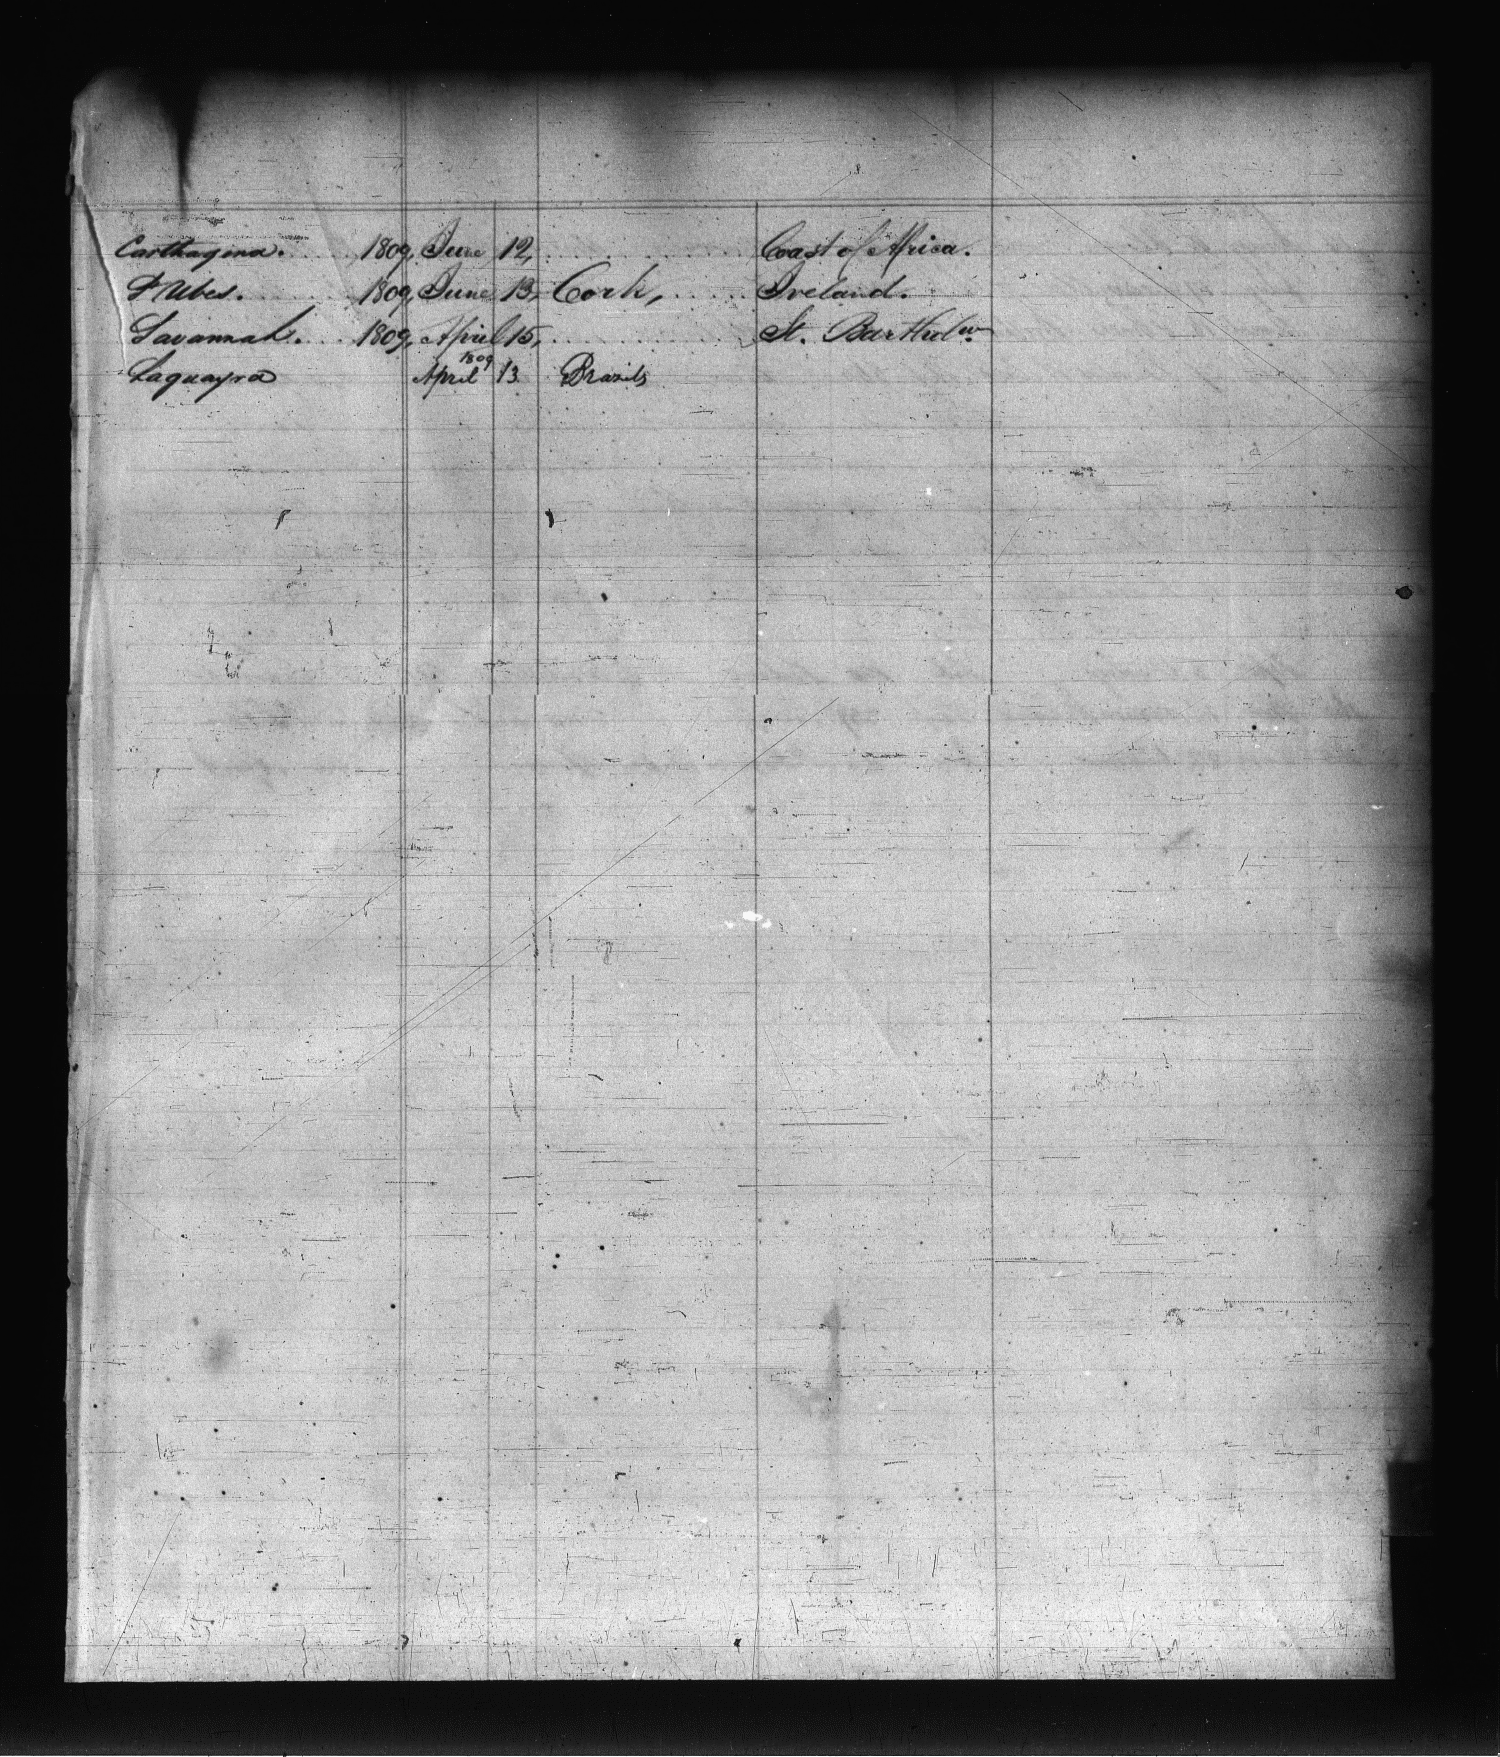 Carthagina. 1809, June 12, Coast of Africa.
St Ubes. 1809, June 13, Cork, Ireland.
Savannah. 1809, April 15, St. Barthol<sup>w</sup>.
Laguayra April 1809 13 Brazils